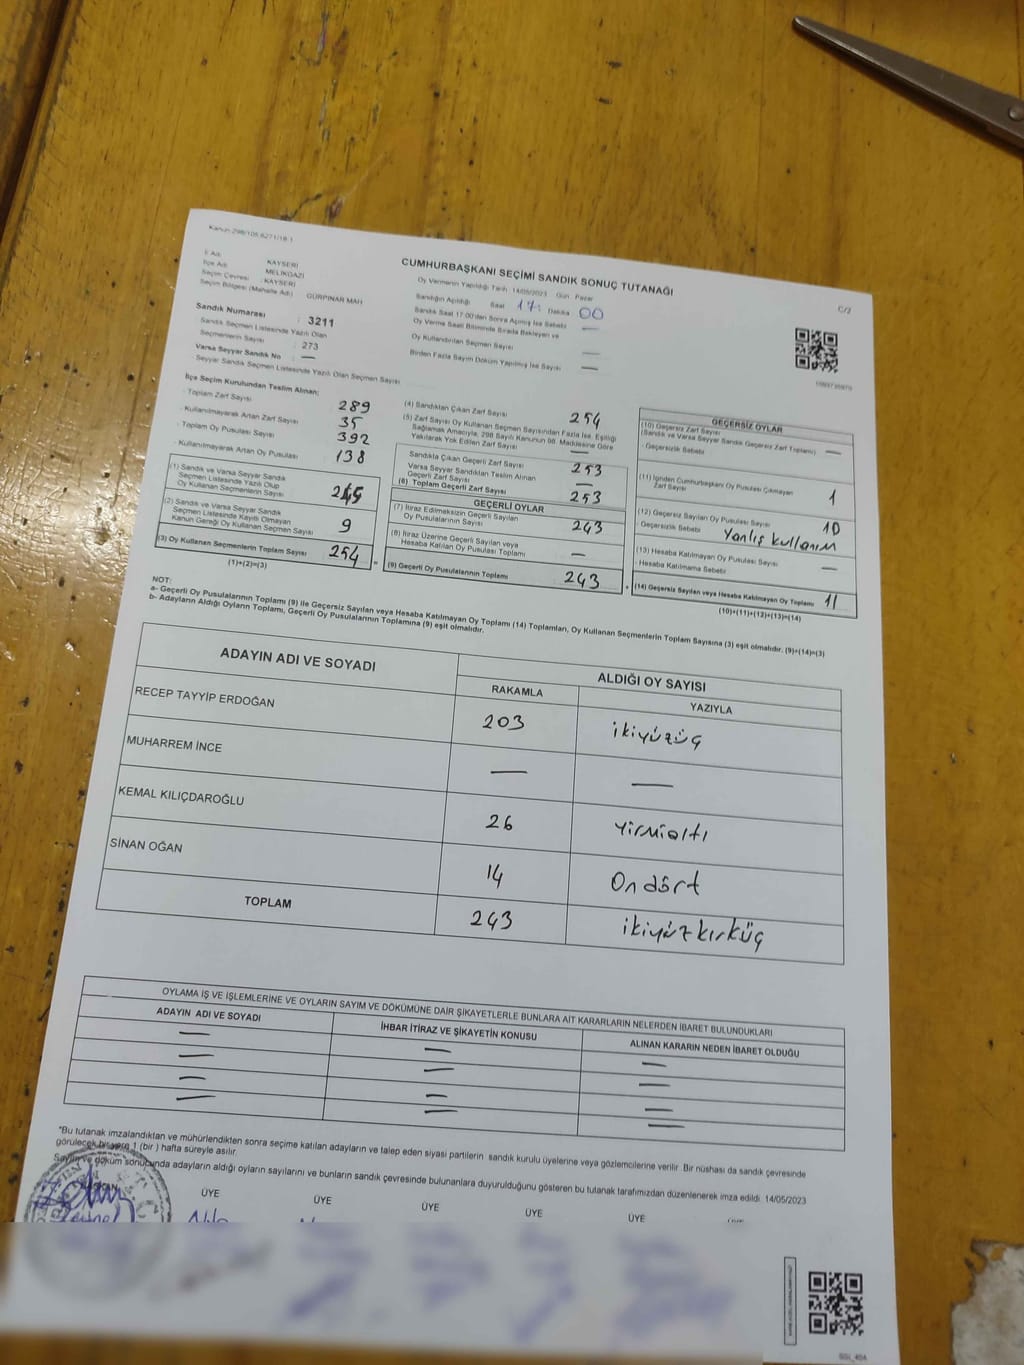 Kanun 298/105,6271/18-1
CUMHURBAŞKANI SEÇİMİ SANDIK SONUÇ TUTANAĞI
C/2
İl Adı : KAYSERİ
İlçe Adı : MELİKGAZİ
Seçim Çevresi : KAYSERİ
Seçim Bölgesi (Mahalle Adı) : GÜRPINAR MAH
Sandık Numarası : 3211
Sandık Seçmen Listesinde Yazılı Olan
Seçmenlerin Sayısı : 273
Varsa Seyyar Sandık No : —
Seyyar Sandık Seçmen Listesinde Yazılı Olan Seçmen Sayısı
Oy Vermenin Yapıldığı Tarih: 14/05/2023 Gün: Pazar
Sandığın Açıldığı Saat 17: Dakika 00
Sandık Saat 17.00'dan Sonra Açılmış İse Sebebi —
Oy Verme Saati Bitiminde Sırada Bekleyen ve
Oy Kullandırılan Seçmen Sayısı —
Birden Fazla Sayım Döküm Yapılmış İse Sayısı —
İlçe Seçim Kurulundan Teslim Alınan:
Toplam Zarf Sayısı 289
Kullanılmayarak Artan Zarf Sayısı 35
Toplam Oy Pusulası Sayısı 392
Kullanılmayarak Artan Oy Pusulası 138
(1) Sandık ve Varsa Seyyar Sandık
Seçmen Listesinde Yazılı Olup
Oy Kullanan Seçmenlerin Sayısı 245
(2) Sandık ve Varsa Seyyar Sandık
Seçmen Listesinde Kayıtlı Olmayan
Kanun Gereği Oy Kullanan Seçmen Sayısı 9
(3) Oy Kullanan Seçmenlerin Toplam Sayısı 254
(1)+(2)=(3)
(4) Sandıktan Çıkan Zarf Sayısı 254
(5) Zarf Sayısı Oy Kullanan Seçmen Sayısından Fazla İse, Eşitliği
Sağlamak Amacıyla, 298 Sayılı Kanunun 98. Maddesine Göre
Yakılarak Yok Edilen Zarf Sayısı —
Sandıkta Çıkan Geçerli Zarf Sayısı 253
Varsa Seyyar Sandıktan Teslim Alınan
Geçerli Zarf Sayısı —
(6) Toplam Geçerli Zarf Sayısı 253
GEÇERLİ OYLAR
(7) İtiraz Edilmeksizin Geçerli Sayılan
Oy Pusulalarının Sayısı 243
(8) İtiraz Üzerine Geçerli Sayılan veya
Hesaba Katılan Oy Pusulası Toplamı —
(9) Geçerli Oy Pusulalarının Toplamı 243
GEÇERSİZ OYLAR
(10) Geçersiz Zarf Sayısı
(Sandık ve Varsa Seyyar Sandık Geçersiz Zarf Toplamı) —
Geçersizlik Sebebi
(11) İçinden Cumhurbaşkanı Oy Pusulası Çıkmayan
Zarf Sayısı 1
(12) Geçersiz Sayılan Oy Pusulası Sayısı 10
Geçersizlik Sebebi: Yanlış kullanım
(13) Hesaba Katılmayan Oy Pusulası Sayısı —
Hesaba Katılmama Sebebi
(14) Geçersiz Sayılan veya Hesaba Katılmayan Oy Toplamı 11
(10)+(11)+(12)+(13)=(14)
NOT:
a- Geçerli Oy Pusulalarının Toplamı (9) ile Geçersiz Sayılan veya Hesaba Katılmayan Oy Toplamı (14) Toplamları, Oy Kullanan Seçmenlerin Toplam Sayısına (3) eşit olmalıdır. (9)+(14)=(3)
b- Adayların Aldığı Oyların Toplamı, Geçerli Oy Pusulalarının Toplamına (9) eşit olmalıdır.
ADAYIN ADI VE SOYADI ALDIĞI OY SAYISI
RAKAMLA YAZIYLA
RECEP TAYYİP ERDOĞAN 203 ikiyüzüç
MUHARREM İNCE — —
KEMAL KILIÇDAROĞLU 26 Yirmialtı
SİNAN OĞAN 14 Ondört
TOPLAM 243 ikiyüzkırküç
OYLAMA İŞ VE İŞLEMLERİNE VE OYLARIN SAYIM VE DÖKÜMÜNE DAİR ŞİKAYETLERLE BUNLARA AİT KARARLARIN NELERDEN İBARET BULUNDUKLARI
ADAYIN ADI VE SOYADI İHBAR İTİRAZ VE ŞİKAYETİN KONUSU ALINAN KARARIN NEDEN İBARET OLDUĞU
— — —
— — —
— — —
— — —
*Bu tutanak imzalandıktan ve mühürlendikten sonra seçime katılan adayların ve talep eden siyasi partilerin sandık kurulu üyelerine veya gözlemcilerine verilir. Bir nüshası da sandık çevresinde
görülecek bir yere 1 (bir) hafta süreyle asılır.
Sayım ve döküm sonucunda adayların aldığı oyların sayılarını ve bunların sandık çevresinde bulunanlara duyurulduğunu gösteren bu tutanak tarafımızdan düzenlenerek imza edildi. 14/05/2023
BAŞKAN ÜYE ÜYE ÜYE ÜYE ÜYE ÜYE